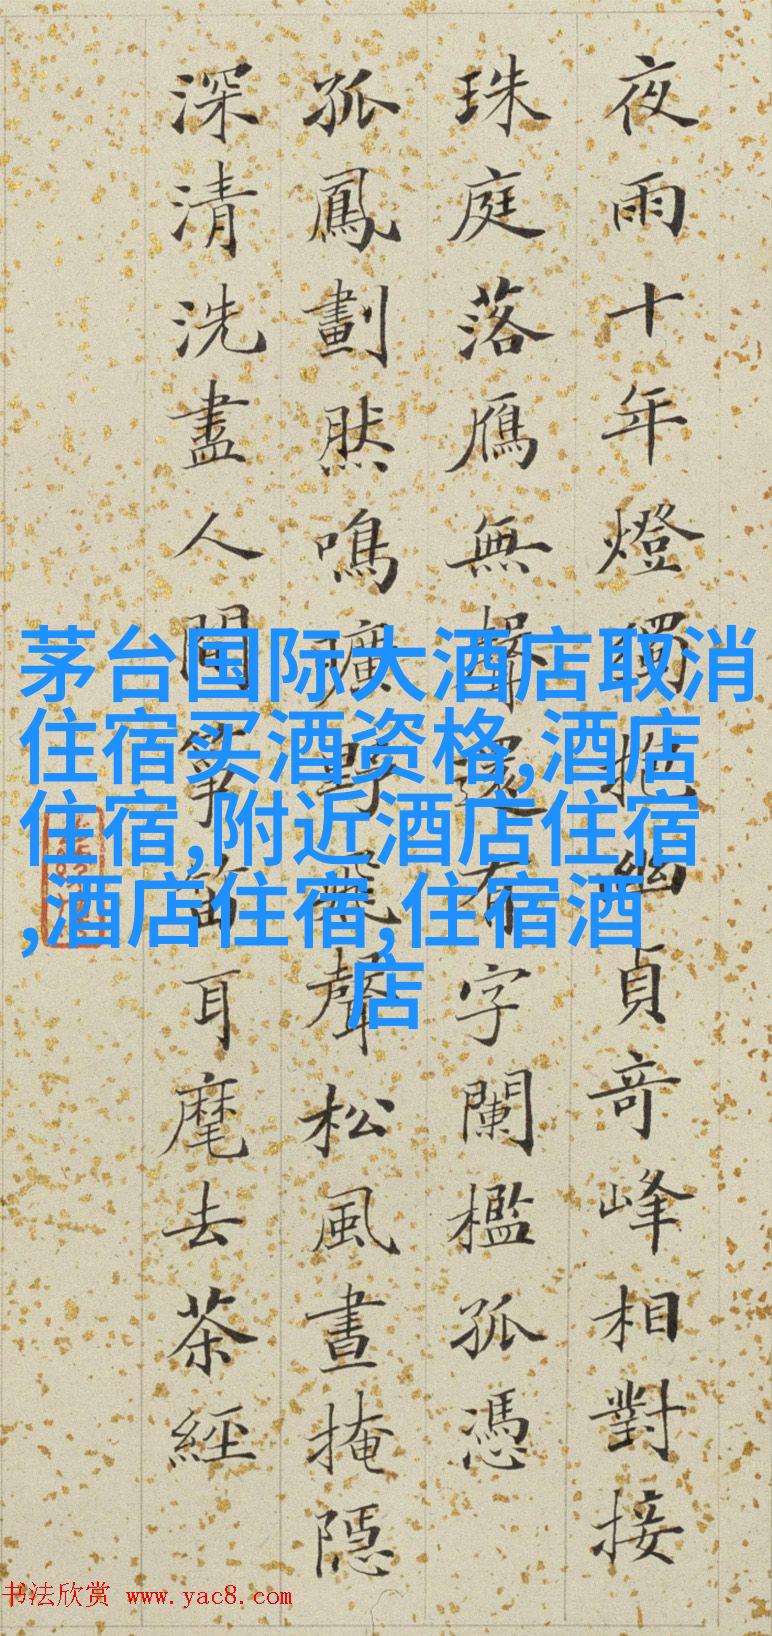 夜雨十年燈獨抱幽貞奇峰相對接
珠庭落鴈無還有字闌檻孤憑
孤鳳劃然鳴曠野飛聲松風晝掩隱
深清洗盡人間箏笛耳麾去茶經
茅台国际大酒店取消
住宿买酒资格,酒店
住宿,附近酒店住宿
,酒店住宿,住宿酒
店
书法欣赏 www.yac8.com